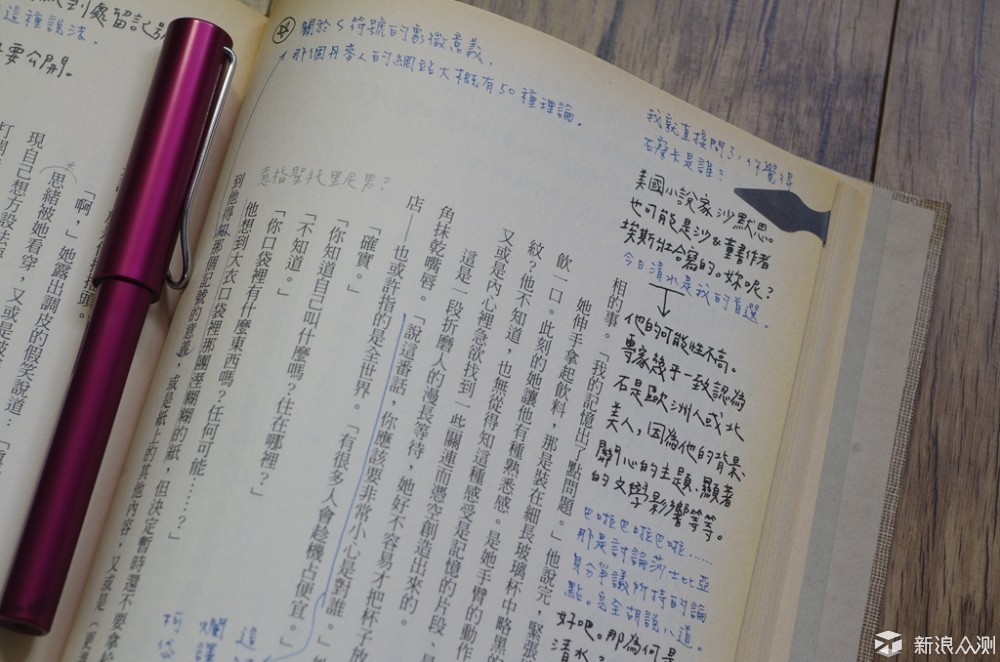 處留記號
這種說法.
要公開.
關於S符號的象徵意義.
那個丹麥人的網站大概有50種理論.
我就直接問了：你覺得
石察卡是誰？
美國小說家沙默思。
也可能是沙&童書作者
埃斯壯合寫的。妳呢？
今日清水是我的首選.
他的可能性不高。
專家幾乎一致認為
石是歐洲人或北
美人，因為他的背景、
關心的主題、顯著
的文學影響等等。
巴啦巴啦巴啦……
那是討論莎士比亞
身分爭議所持的論
點。完全胡說八道。
好吧。那為何是
清水？
意指聖托里尼男？
相的事。「我的記憶出了點問題。」他說完，緊張
她伸手拿起飲料，那是裝在細長玻璃杯中略黑的
飲一口。此刻的她讓他有種熟悉感。是她手臂的動作
紋？他不知道，也無從得知這種感受是記憶的片段、是
又或是內心裡急欲找到一些關連而憑空創造出來的。
這是一段折磨人的漫長等待，她好不容易才把杯子放
角抹乾嘴唇。「說這番話，你應該要非常小心是對誰。」
店——也或許指的是全世界。「有很多人會趁機占便宜。」
「確實。」
「你知道自己叫什麼嗎？住在哪裡？」
「不知道。」
「你口袋裡有什麼東西嗎？任何可能……？」
他想到大衣口袋裡那團溼糊糊的紙，但決定暫時還不要拿給
到他得知那個記號的意義，或是紙上的其他內容，又或是（更
「啊，」她露出調皮的假笑說道：
思緒被她看穿，又或是
現自己想方設法
新浪众测